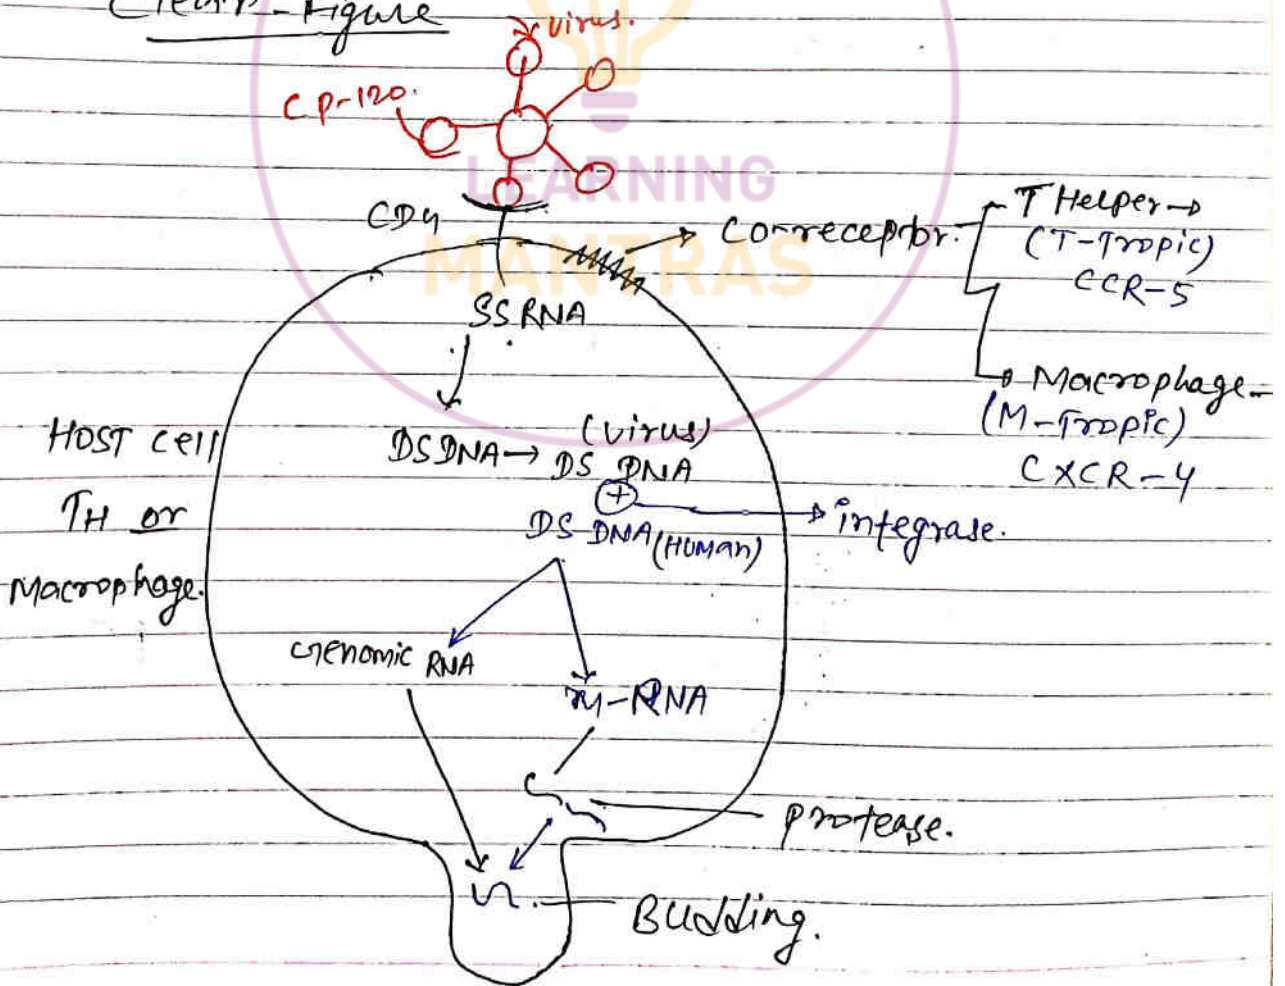 Clear-Figure
virus.
CP-120.
LEARNING
MANTRAS
CD4
Co-receptor.
T Helper→
(T-Tropic)
CCR-5
Macrophage-
(M-Tropic)
CXCR-4
SSRNA
HOST cell
TH or
Macrophage.
(virus)
DSDNA→ DS DNA
+
DS DNA (HUMAN)
integrase.
Genomic RNA
m-RNA
protease.
Budding.